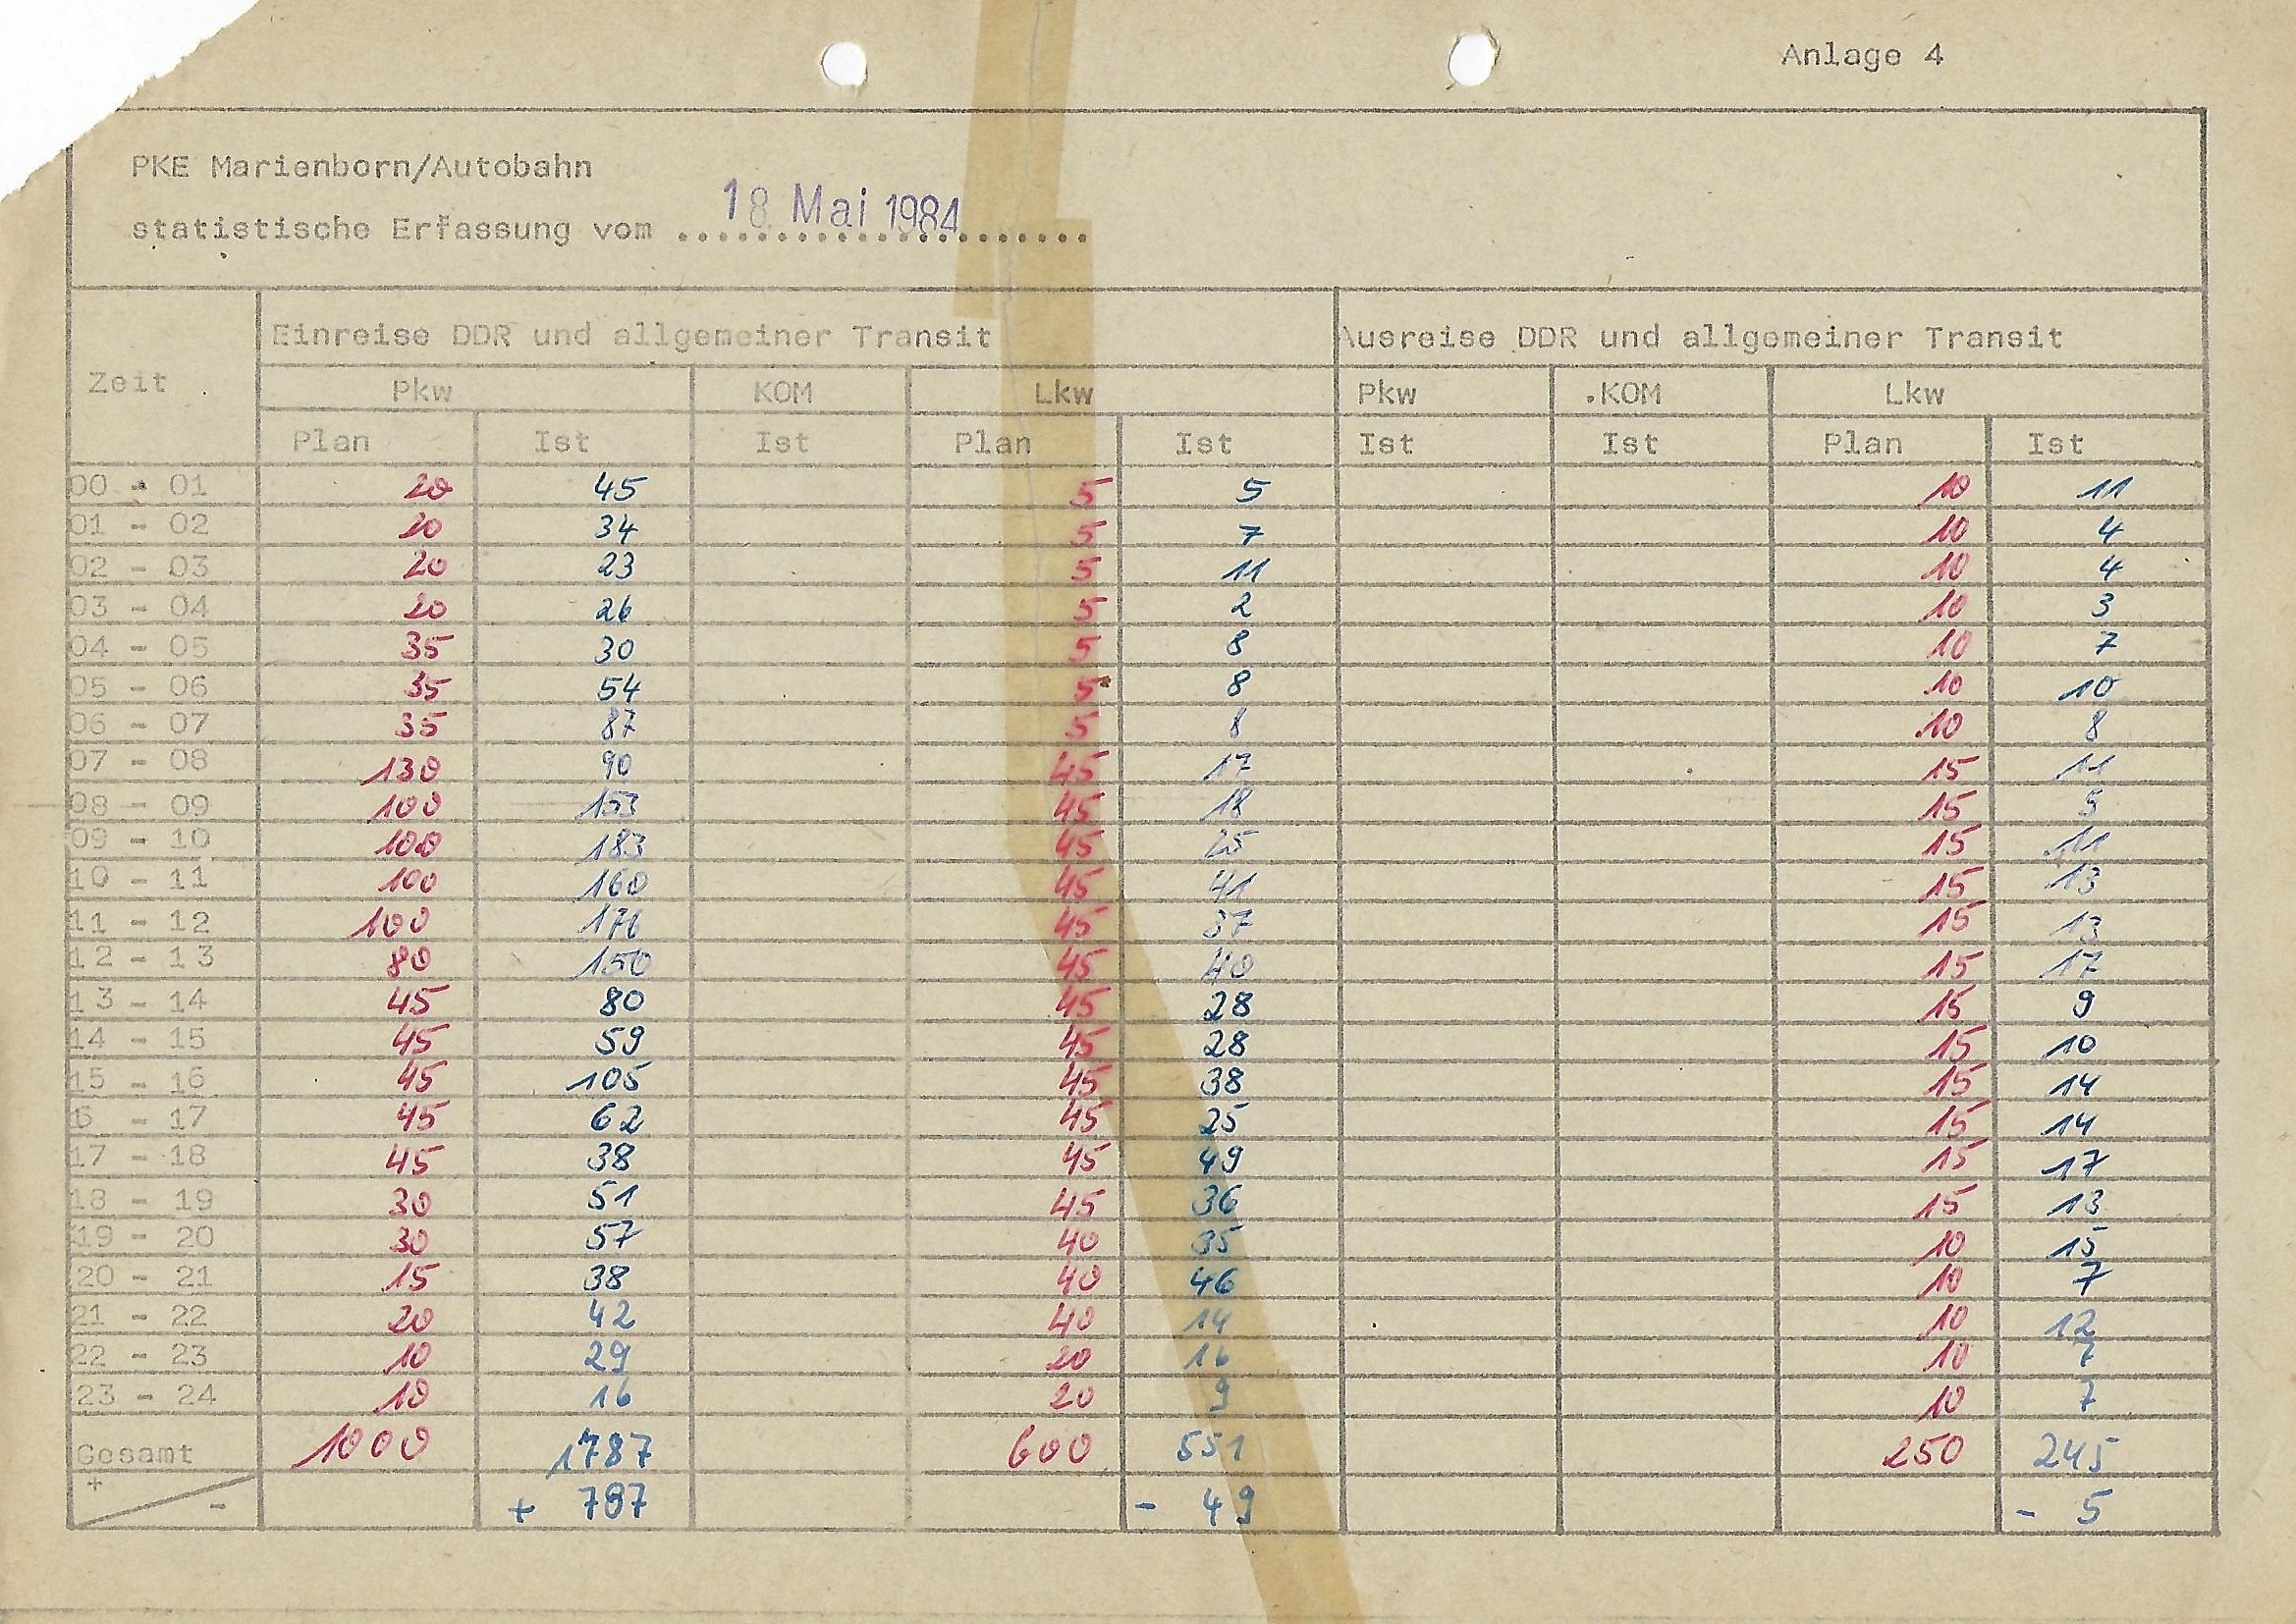 Anlage 4
PKE Marienborn/Autobahn
statistische Erfassung vom 18. Mai 1984
Zeit Einreise DDR und allgemeiner Transit Ausreise DDR und allgemeiner Transit
Pkw KOM Lkw Pkw KOM Lkw
Plan Ist Ist Plan Ist Ist Ist Plan Ist
00 - 01 20 45 5 5 10 11
01 - 02 20 34 5 7 10 4
02 - 03 20 23 5 11 10 4
03 - 04 20 26 5 2 10 3
04 - 05 35 30 5 8 10 7
05 - 06 35 54 5 8 10 10
06 - 07 35 87 5 8 10 8
07 - 08 130 90 45 17 15 11
08 - 09 100 153 45 18 15
09 - 10 100 183 45 25 15 11
10 - 11 100 160 45 41 15 13
11 - 12 100 176 45 37 15 13
12 - 13 80 150 45 40 15 17
13 - 14 45 80 45 28 15 9
14 - 15 45 59 45 28 15 10
15 - 16 45 105 45 38 15 14
6 - 17 45 62 45 25 15 14
17 - 18 45 38 45 49 15 17
18 - 19 30 51 45 36 15 13
19 - 20 30 57 40 35 10 15
20 - 21 15 38 40 46 10 7
21 - 22 20 42 40 14 10 12
22 - 23 10 29 20 16 10 7
23 - 24 10 16 20 9 10 7
Gesamt 1000 1787 600 551 250 245
+ - + 787 - 49 - 5